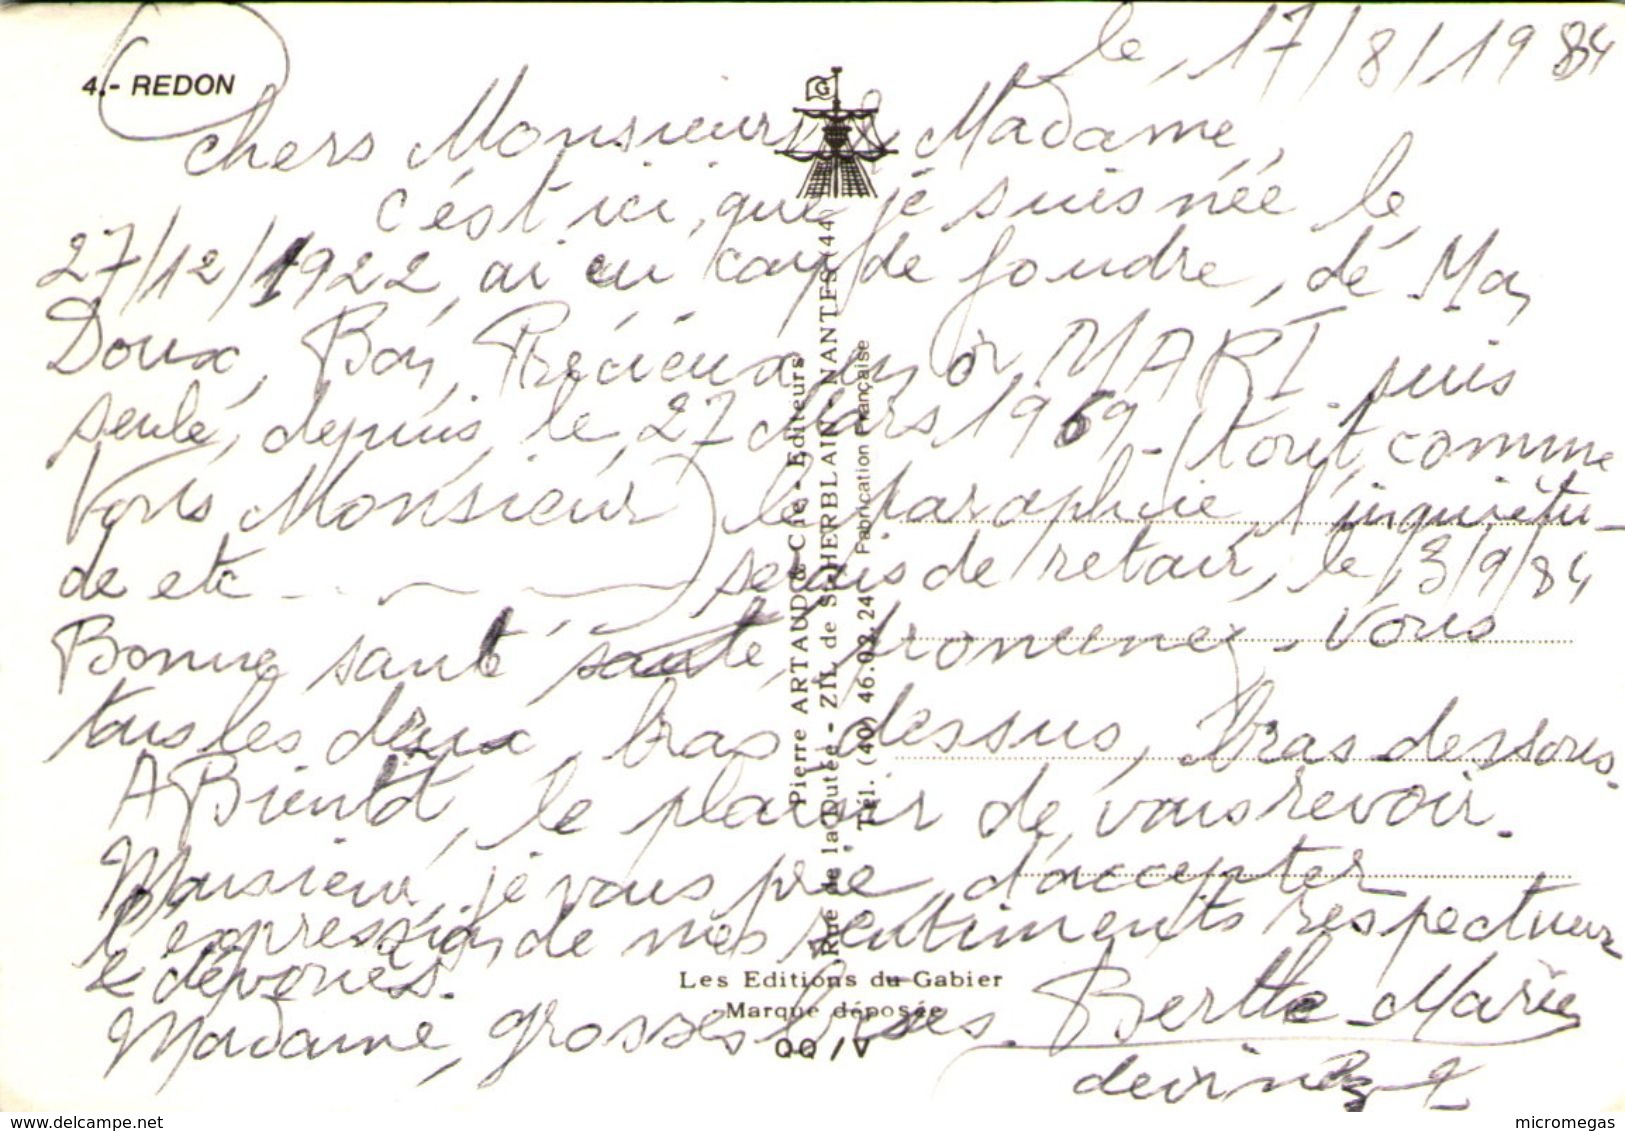 4.- REDON
le, 17/8/1984
Chers Monsieur & Madame,
c'est ici, que je suis née le
27/12/1922, ai eu coup de foudre, de Mon
Doux, Bon, Précieux, en or, MARI. suis
seule, depuis, le, 27 Mars 1969 - (tout, comme
Vous Monsieur) le parapluie, l'inquiétu-
de etc - - - serais de retour, le, 3/9/84
Bonne santé, promenez-vous
tous les deux, bras dessus, bras dessous.
A Bientôt, le plaisir de, vous revoir.
Monsieur, je vous prie, d'accepter
l'expression, de mes sentiments respectueux
& dévoués.
Madame, grosses bises. Berthe-Marie
devinez
Pierre ARTAUD & Cie - Editeurs
Rue de la Dutée - ZIL de St-HERBLAIN - NANTES (44)
Tél. (40) 46.02.24 Fabrication Française
G
Les Editions du Gabier
Marque déposée
QO/V
micromegas